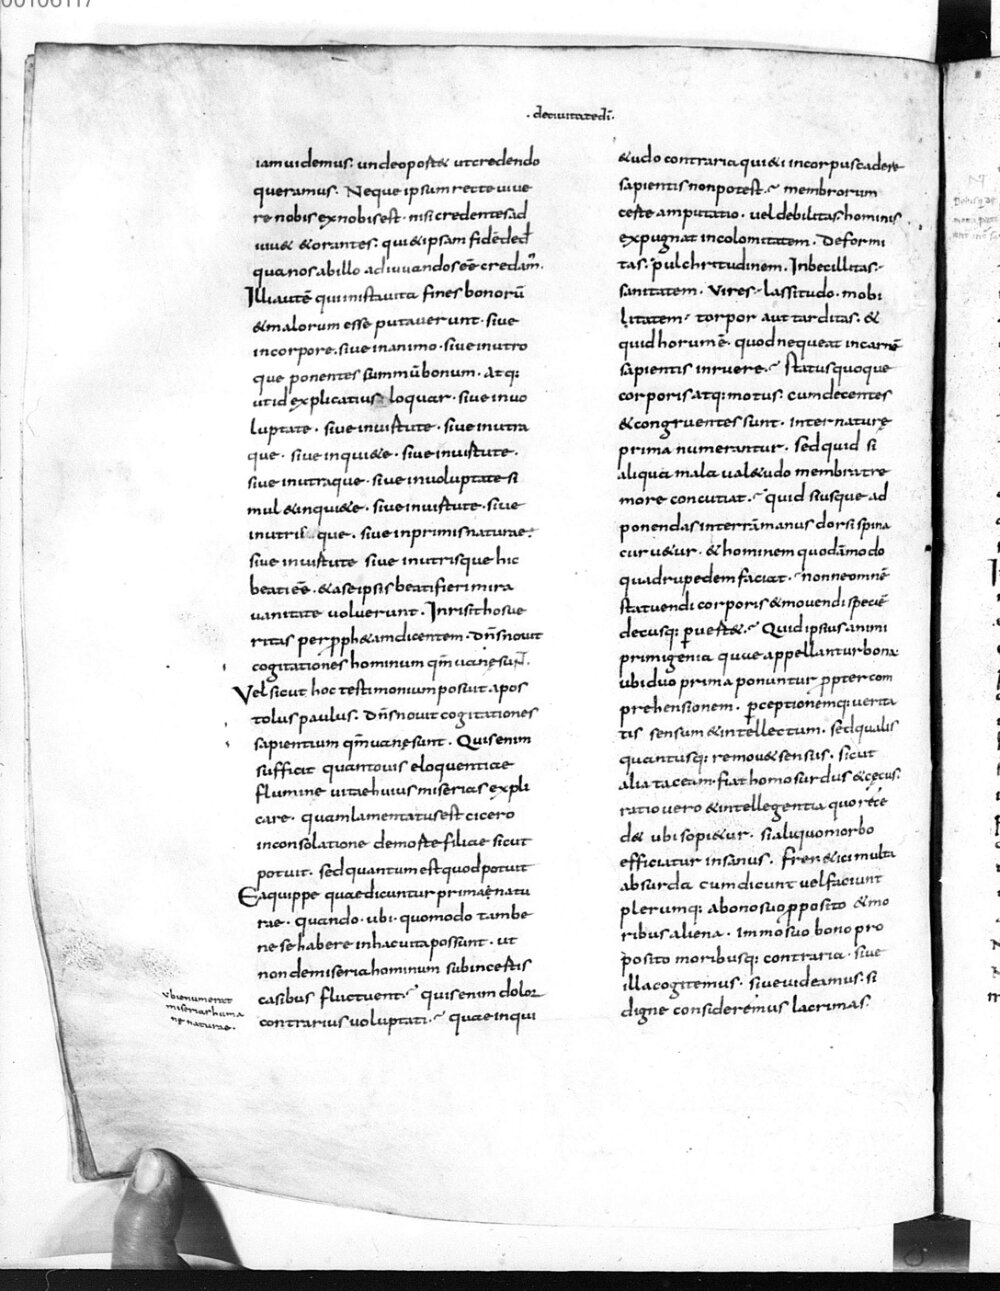 00106117
·deciuitatedī·
iamuidemus· undeoport& utcredendo
queramus· Neque ipsum recte uiue
re nobis exnobisest· nisi credentesad
iuu& &orantes· qui&ipsam fidēded̄
quanosabillo adiuuandoseē credam̄·
Illiautē quiinistauita fines bonorū
&malorum esse putauerunt· siue
incorpore· siue inanimo· siueinutro
que ponentes summūbonum· Atq;
utid explicatius loquar· siue inuo
luptate· siue inuirtute· siueinutra
que· siue inqui&e· siue inuirtute·
siue inutraque· siue inuoluptate si
mul &inqui&e· siue inuirtute· siue
inutris que· siue inprimisnaturae·
siue inuirtute siue inutrisque hic
beatieē· &aseipsis beatifierimira
uanitate uoluerunt· Inrisithosue
ritas per pph&amdicentem· Dn̄snouit
cogitationes hominum qm̄uanęsun̄·
Vel sicut hoc testimoniumposuit apos
tolus paulus· Dn̄snouit cogitationes
sapientium qm̄uanęsunt· Quisenim
sufficit quantouis eloquentiae
flumine uitaehuius miserias expli
care· quamlamentatusest cicero
inconsolatione demorte filiae sicut
potuit· sedquantum estquodpotuit
Eaquippe quaedicuntur primaęnatu
rae· quando· ubi· quomodo tambe
ne se habere inhacuitapossunt· ut
nondemiseriahominum subincertis
casibus fluctuent· quisenim dolor
contrarius uoluptati· quaeinqui
ubienumerat
miseriashuma
nę naturae·
&udo contraria qui&i incorpuscadere
sapientis nonpotest· membrorum
certe amputatio· uel debilitas hominis
expugnat incolomitatem· Deformi
tas· pulchritudinem· Inbecillitas·
sanitatem· Vires· lassitudo· mobi
litatem· torpor aut tarditas· &
quid horumē· quodnequeat incarnē
sapientis inruere· Statusquoque
corporis atq; motus· cumdecentes
&congruentes sunt· inter naturę
prima numerantur· Sedquid si
aliqua mala ual&udo membratre
more concutiat· quid siusque ad
ponendas interrāmanus dorsi spina
curu&ur· &hominem quodāmodo
quadrupedem faciat· nonneomnē
statuendi corporis &mouendi speciē
decusq; peruert&· Quid ipsius animi
primigenia quae appellanturbona
ubiduo prima ponuntur ppter com
prehensionem· pceptionemq; uerita
tis sensum &intellectum· sedqualis
quantusq; remou&sensus· sicut
alia taceam· fiathomo surdus &cęcus·
ratio uero &intellegentia quorece
d& ubi sopi&ur· sialiquomorbo
efficiatur insanus· Fren&ici multa
absurda cumdicunt uelfaciunt
plerumq; abonosuopposito &mo
ribus aliena· immosuo bono pro
posito moribusq; contraria· siue
illacogitemus· siueuideamus· si
digne consideremus lacrimas·